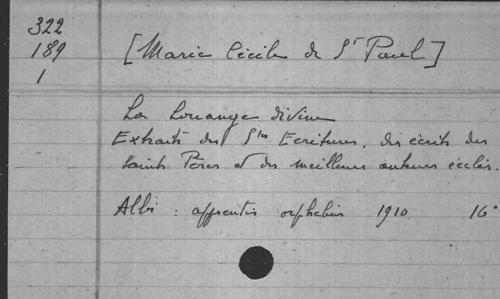 322
189
1
[Marie Cécile de St Paul]
La Louange divine
Extraits des Stes Ecritures, des écrits des
Saints Pères et des meilleurs auteurs ecclés.
Albi : apprentis orphelins 1910 16°